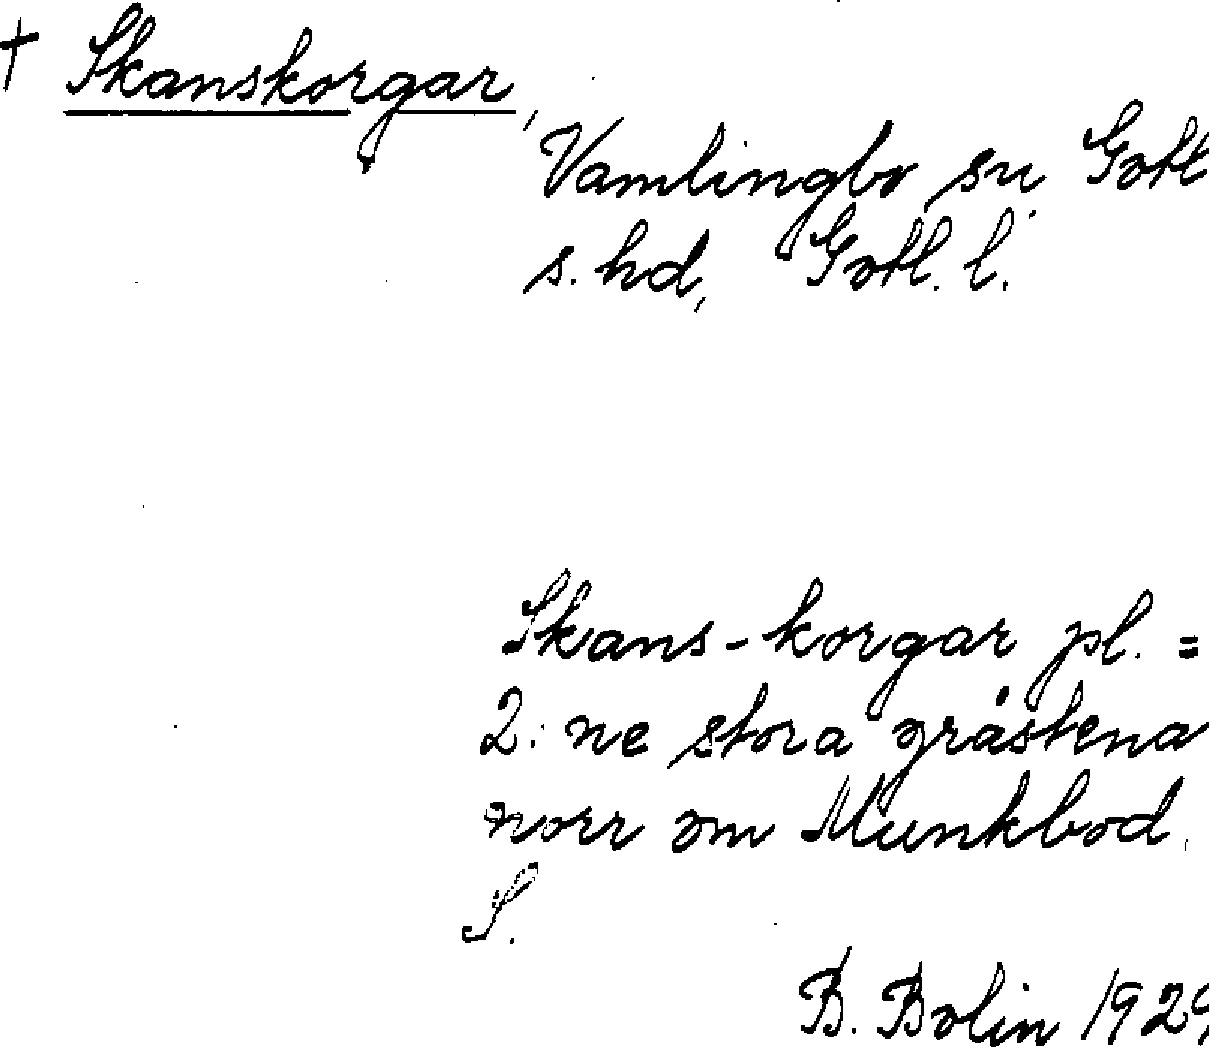 † Skanskorgar,
Vamlingbo sn Gotl
s. hd, Gotl. l.
Skans-korgar pl. =
2: ne stora gråstena
norr om Munkbod.
S.
B. Bolin 1929